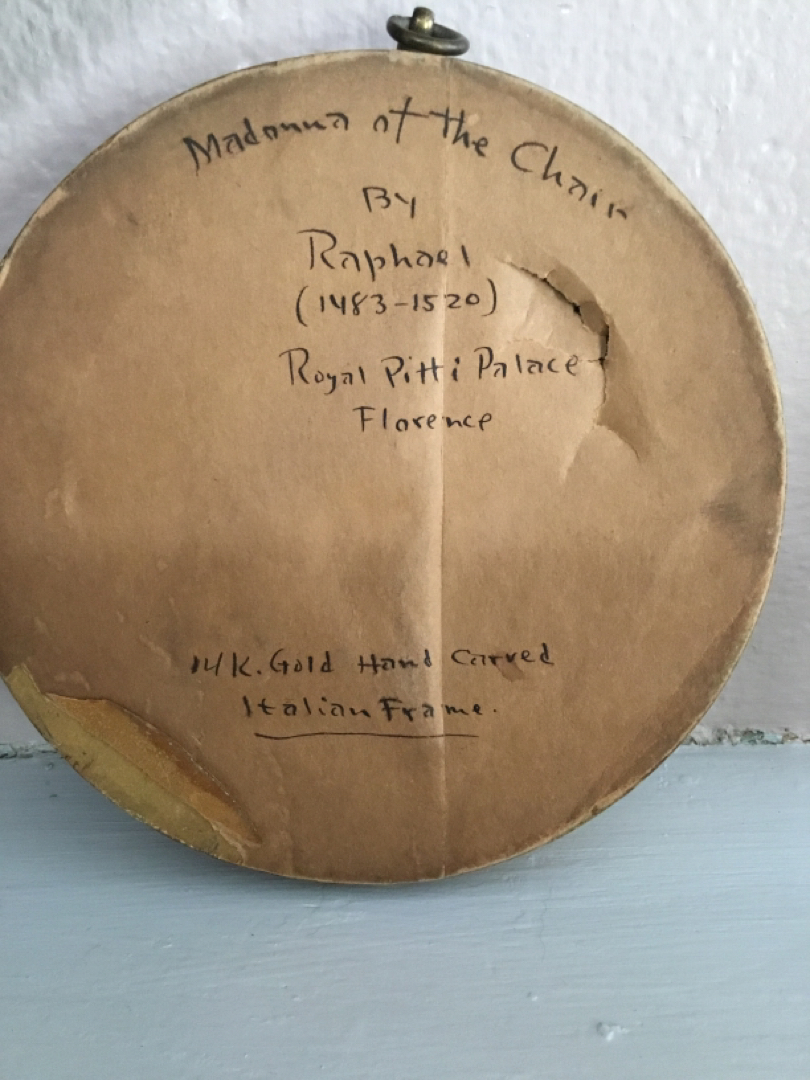 Madonna of the Chair
By
Raphael
(1483-1520)
Royal Pitti Palace
Florence
14K. Gold Hand Carved
Italian Frame.